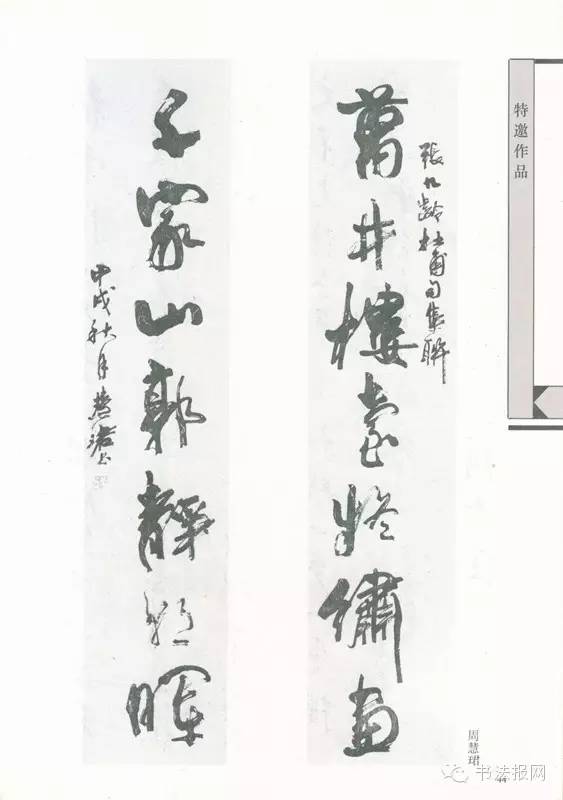 特邀作品
張九齡杜甫句集聯
萬井樓臺疑繡畫
千家山郭靜朝暉
甲戌秋月慧珺书
周慧珺
44
书法报网